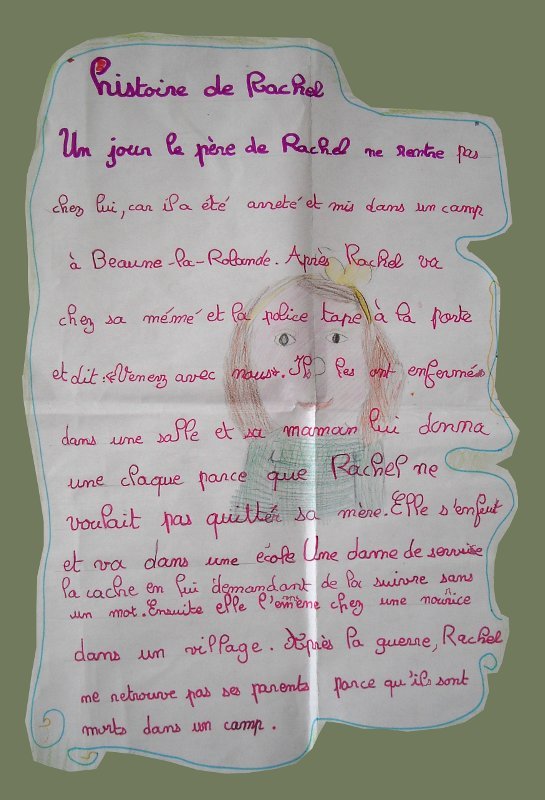 histoire de Rachel
Un jour le père de Rachel ne rentre pas
chez lui, car il a été arreté et mis dans un camp
à Beaune-la-Rolande. Après Rachel va
chez sa mémé et la police tape à la porte
et dit : «Venez avec nous». Ils les ont enfermés
dans une salle et sa maman lui donna
une claque parce que Rachel ne
voulait pas quitter sa mère. Elle s'enfuit
et va dans une école Une dame de service
la cache en lui demandant de la suivre sans
un mot. Ensuite elle l'emmène chez une nourice
dans un village. Après la guerre, Rachel
ne retrouve pas ses parents parce qu'ils sont
morts dans un camp.